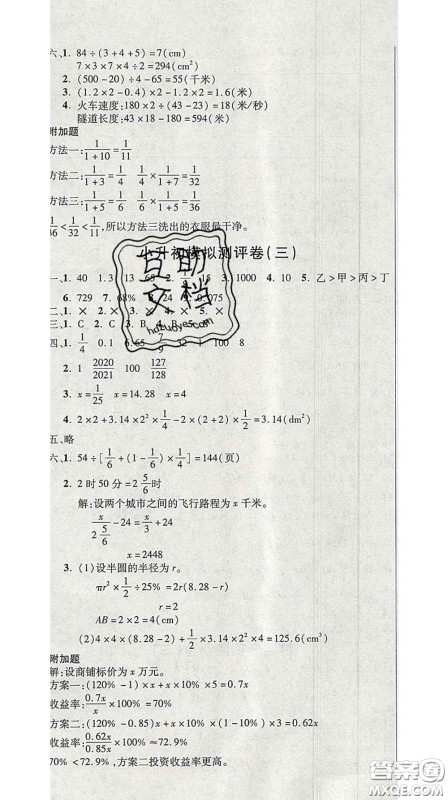 六、1. 84÷(3+4+5)=7(cm)
7×3×7×4÷2=294(cm²)
2. (500-20)÷4-65=55(千米)
3. (1.2×2-0.4)×2-1.2×2=1.6(米)
4. 火车速度:180×2÷(43-23)=18(米/秒)
隧道长度:43×18-180=594(米)
附加题
方法一:1/(1+10)=1/11
方法二:1/(1+3)=1/4 1/4×1/(1+7)=1/32
方法三:1/(1+5)=1/6 1/6×1/(1+5)=1/36
1/36<1/32<1/11,所以方法三洗出的衣服最干净。
小升初模拟测评卷(三)
一、1. 40 1.3 13 68 2. 15 3. 1000 4. 10 5. 乙>甲>丙>丁
6. 729 7. 68% 8. 24 9. 0.075
三、1. C 2. B 3. C 4. B
四、1. 1/4 0.1 6.65 32 1 100 8
2. 1 2020/2021 100 127/128
3. x=1/25 x=14.28 x=4
4. 2×2+3.14×2²×1/4-2×(2+2)×1/2=3.14(dm²)
五、略
六、1. 54÷[1/6+(1-1/6)×1/4]=144(页)
2. 2时50分=2 5/6时
解:设两个城市之间的飞行路程为x千米。
x/(2 5/6)-24=x/3+24
x=2448
3. (1)设半圆的半径为r。
πr²×1/2÷25%=2r(8.28-r)
r=2
AB=2×2=4(cm)
(2)4×4×(8.28-2)+1/2×3.14×2²×4=125.6(cm³)
附加题
解:设商铺标价为x万元。
方案一:(120%-1)×x+x×10%×5=0.7x
收益率:0.7x/x×100%=70%
方案二:(120%-0.85)×x+x×10%×(1-10%)×3=0.62x
收益率:0.62x/0.85x×100%≈72.9%
70%<72.9%,方案二投资收益率更高。
作业帮文档
MXQE.COM